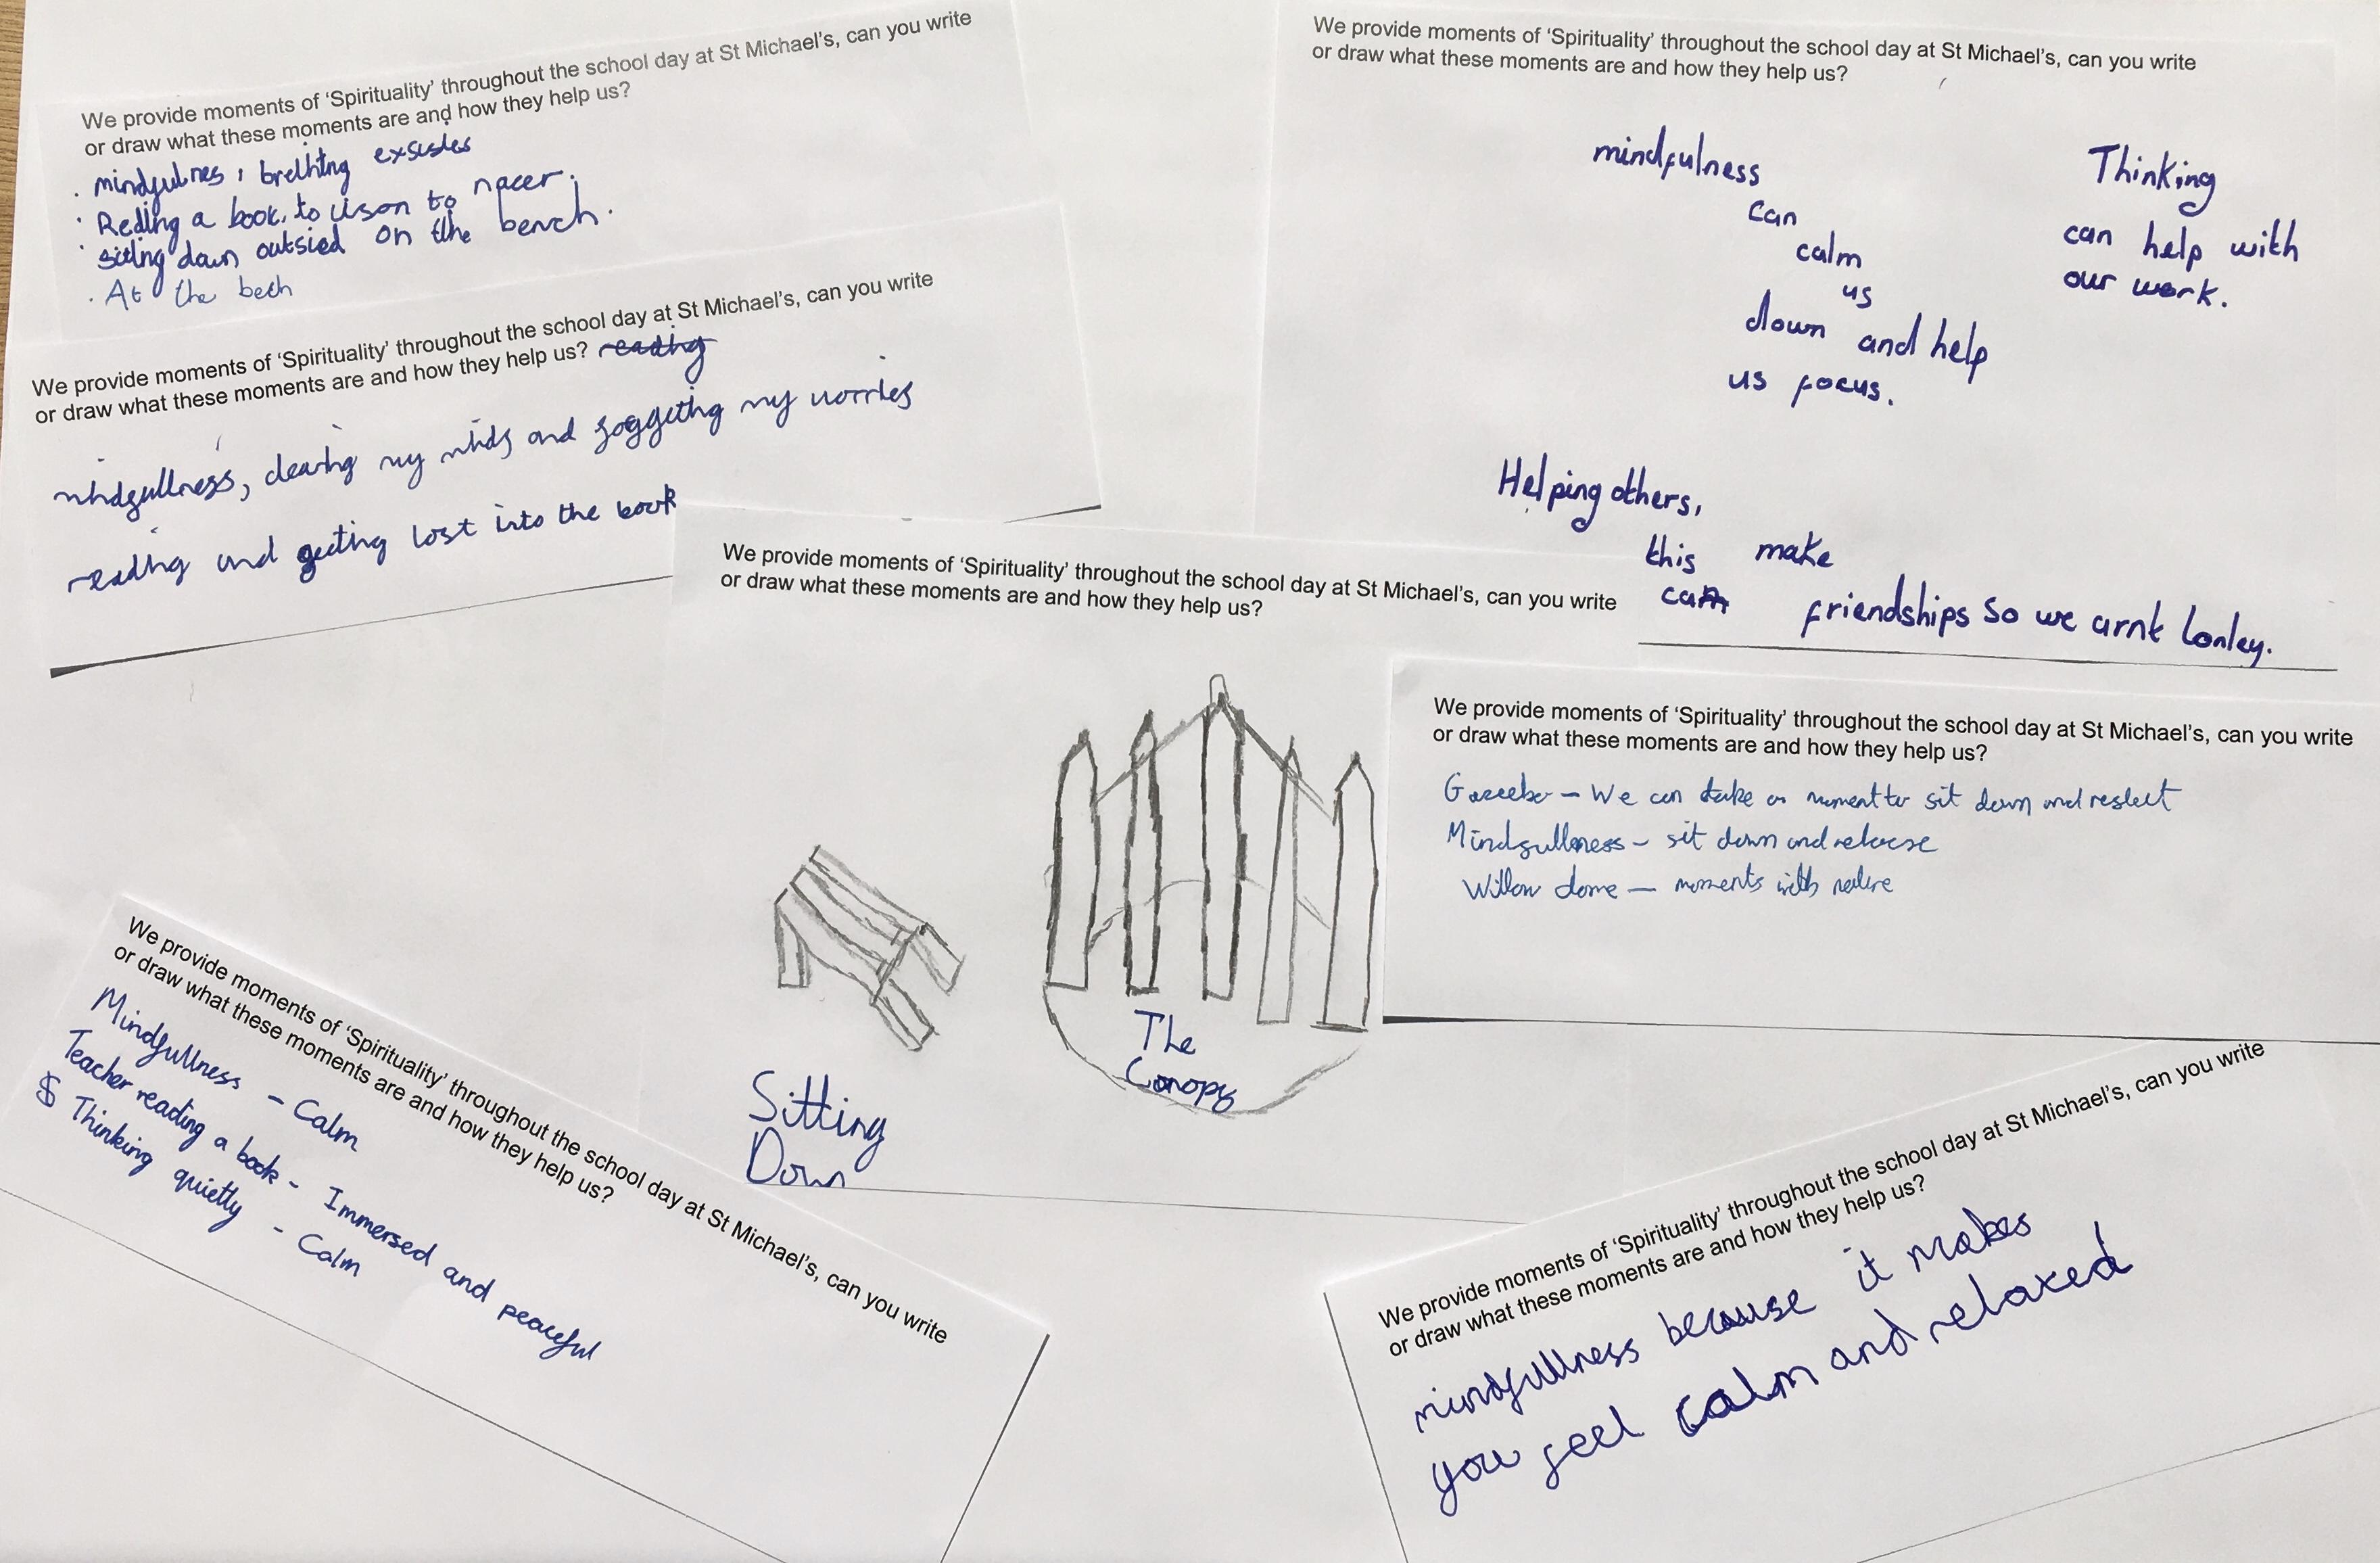 We provide moments of ‘Spirituality’ throughout the school day at St Michael’s, can you write
or draw what these moments are and how they help us?
. mindfulnes, brethting exsisdes
. Reding a book, to lison to nacer.
. siting down outsied on the bench.
. At the bech
We provide moments of ‘Spirituality’ throughout the school day at St Michael’s, can you write
or draw what these moments are and how they help us? reading
mindfullness, clearing my minds and foggeting my worries
reading and getting lost into the book
We provide moments of ‘Spirituality’ throughout the school day at St Michael’s, can you write
or draw what these moments are and how they help us?
mindfulness
can
calm
us
down and help
us focus.
Thinking
can help with
our work.
Helping others,
this make
can friendships so we arnt lonley.
We provide moments of ‘Spirituality’ throughout the school day at St Michael’s, can you write
or draw what these moments are and how they help us?
Sitting
Down
The
Canopy
We provide moments of ‘Spirituality’ throughout the school day at St Michael’s, can you write
or draw what these moments are and how they help us?
Gazeebo – We can take a moment to sit down and reflect
Mindfullness – sit down and relaxe
Willow dome – moments with nature
We provide moments of ‘Spirituality’ throughout the school day at St Michael’s, can you write
or draw what these moments are and how they help us?
Mindfullness – Calm
Teacher reading a book – Immersed and peaceful
Thinking quietly – Calm
We provide moments of ‘Spirituality’ throughout the school day at St Michael’s, can you write
or draw what these moments are and how they help us?
mindfullness because it makes
you feel calm and relaxed